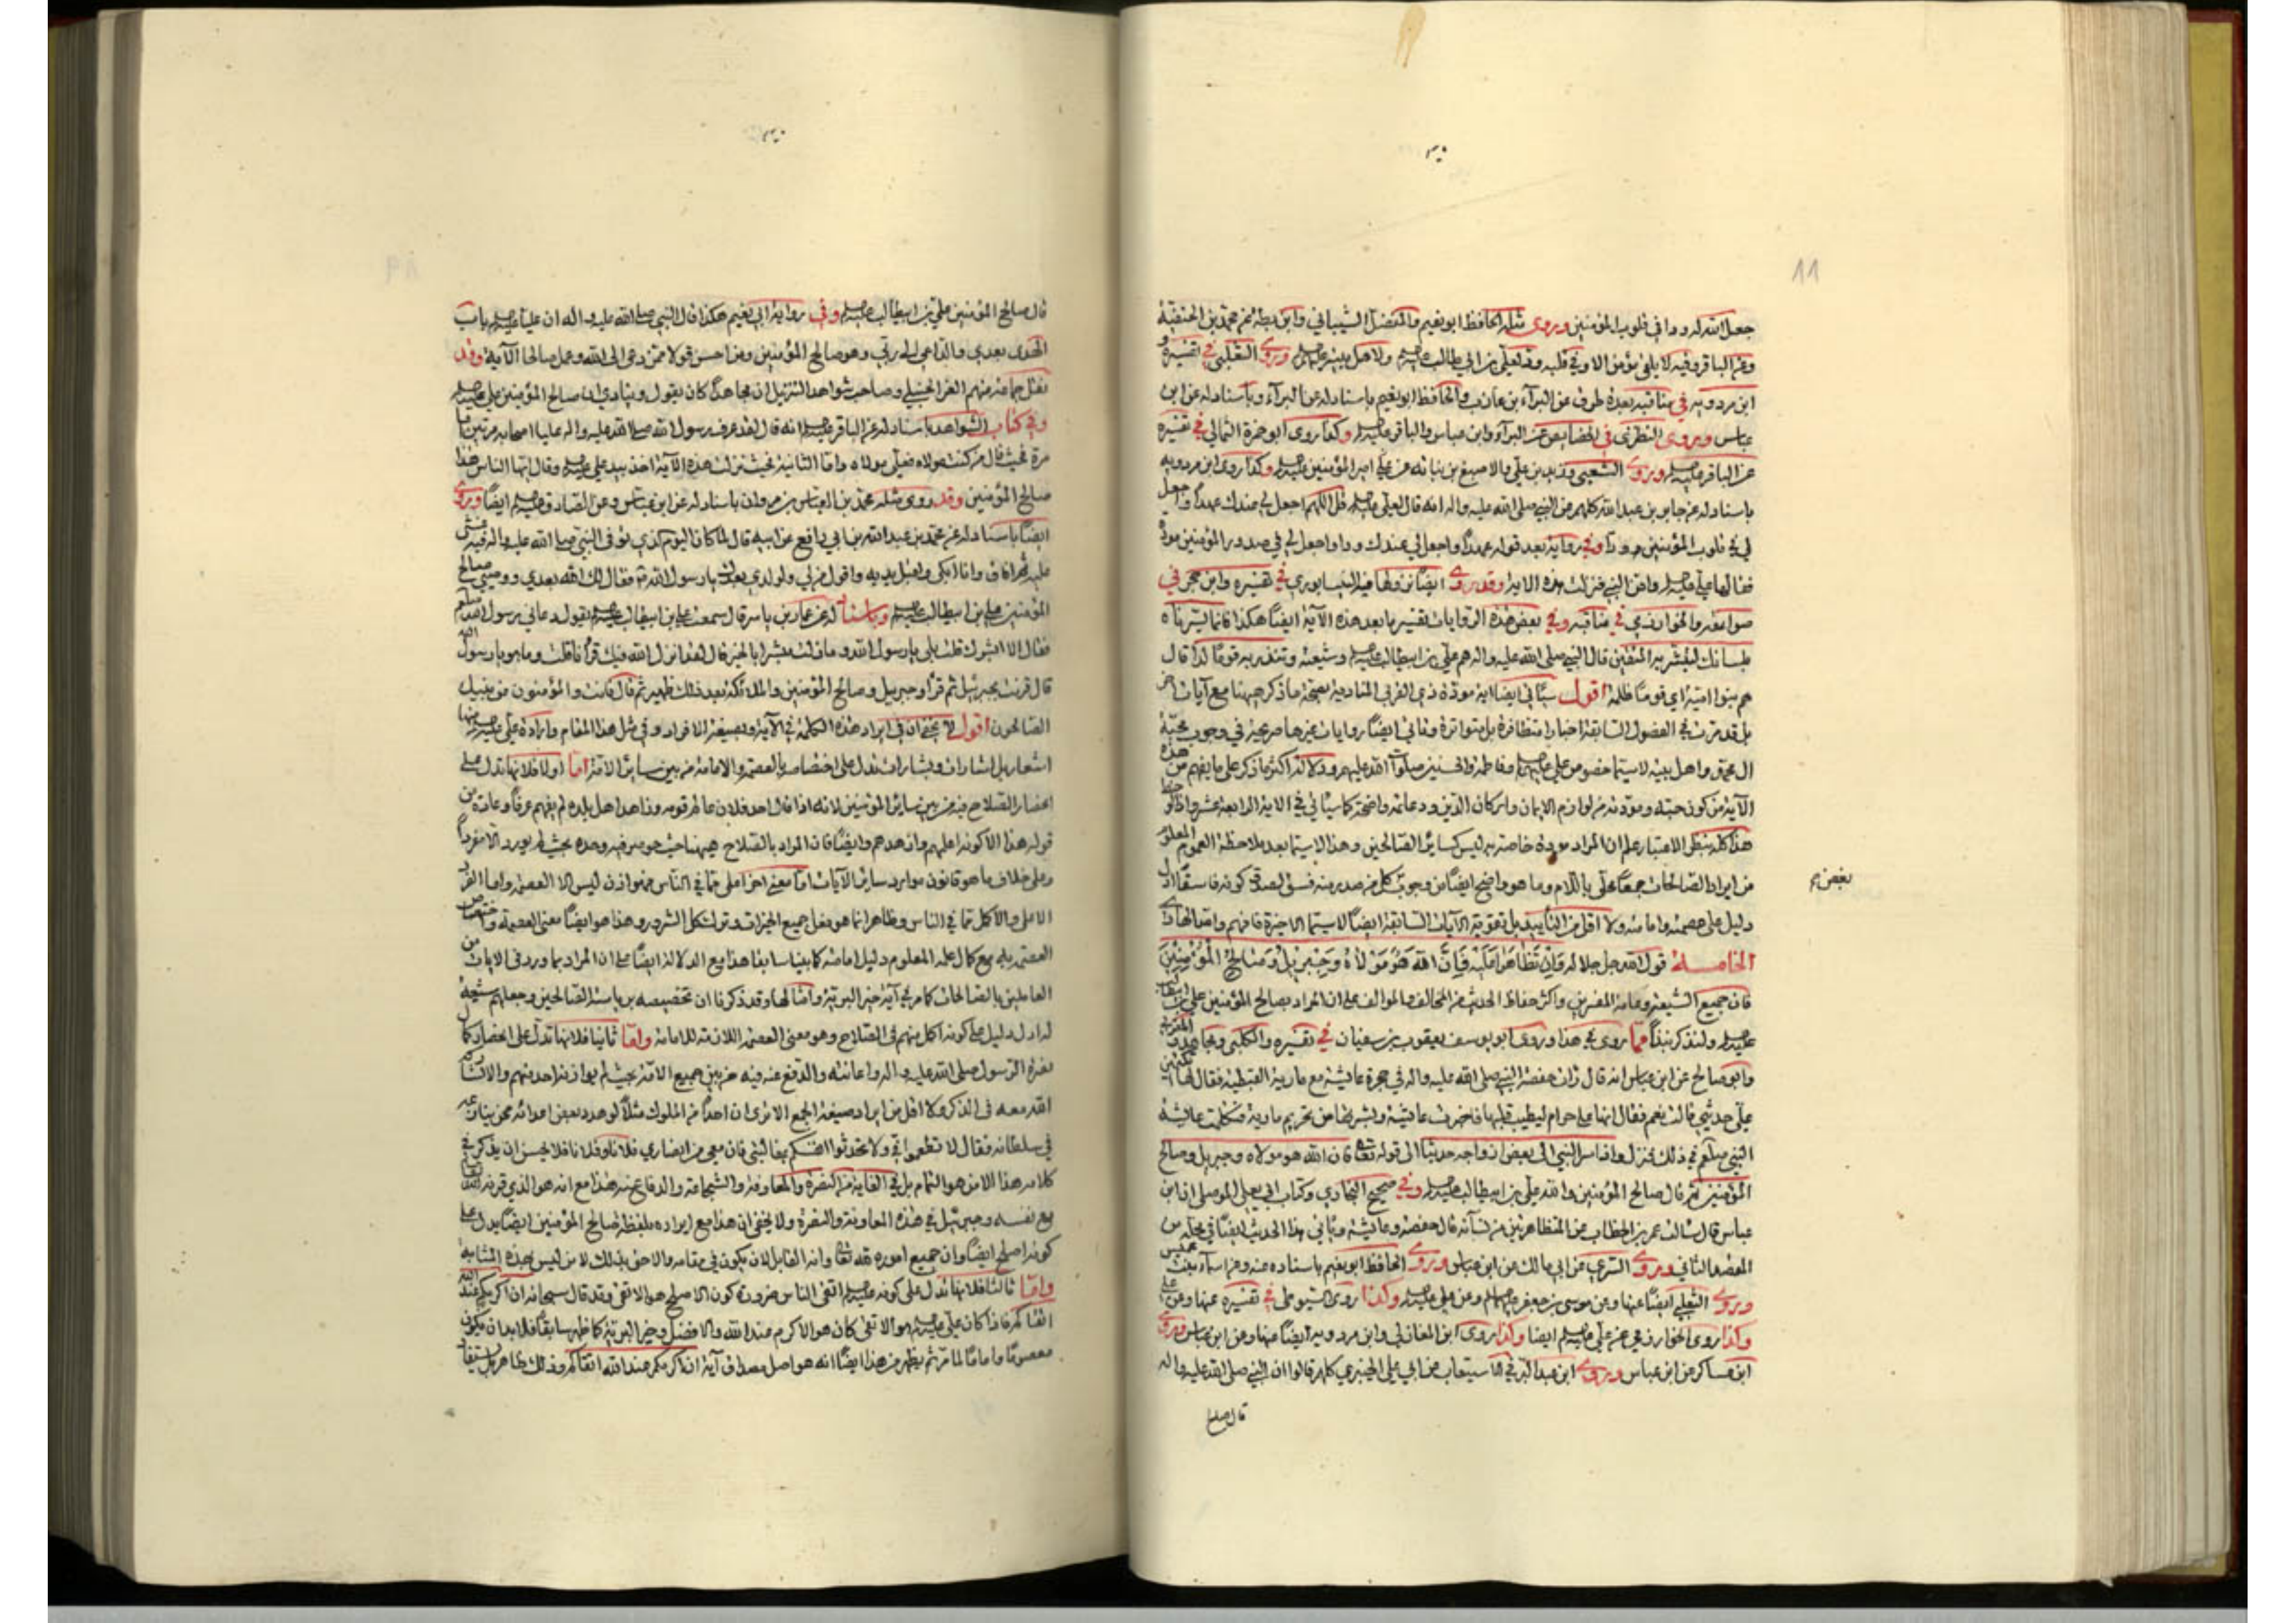 جعل الله له ودا في قلوب المؤمنين وروى مثله الحافظ ابو نعيم والمفضل الشيباني وابن بطة عن محمد بن الحنفية
وعن الباقر وفيه لا يلقى مؤمن الا وفي قلبه ود لعلي بن ابي طالب عليه السلام ولاهل بيته عليهم السلام وروى الثعلبي في تفسيره و
ابن مردويه في مناقبه بعدة طرق عن البرآء بن عازب والحافظ ابو نعيم باسناد له عن البرآء وبأسناد له عن ابن
عباس وروى النطنزى في الخصايص عن البرآء وابن عباس والباقر عليه السلام وكذا روى ابو حمزة الثمالي في تفسيره
عن الباقر عليه السلام وروى الشعبي وزيد بن علي والاصبغ بن نباته عن علي امير المؤمنين عليه السلام وكذا روى ابن مردويه
باسناد له عن جابر بن عبد الله كلهم من النبي صلى الله عليه واله انه قال لعلي عليه السلام قل اللهم اجعل لي عندك عهدا واجعل
لي في قلوب المؤمنين ودا وفي رواية بعد قوله عهدا واجعل لي عندك ودا واجعل لي في صدور المؤمنين مودة
فقالها علي عليه السلام وامن النبي فنزلت هذه الاية وقد روى ايضا نزولها فيه النيسابوري في تفسيره وابن حجر في
صواعقه والخوارزمي في مناقبه وفي بعض هذه الروايات تفسير ما بعد هذه الآية ايضا هكذا فانما يسرناه
بلسانك لتبشر به المتقين قال النبي صلى الله عليه واله هم علي بن ابيطالب عليه السلام وشيعته وتنذر به قوما لدا قال
هم بنوا امية اي قوما ظلمة اقول سيأتي ايضا اية مودة ذي القربى المنادية بصحة ما ذكر ههنا مع آيات اخر
بل قد مرت في الفصول السابقة اخبار متظافرة بل متواترة وتأتي ايضا روايات غيرها صريحة في وجوب محبة
ال محمد واهل بيته لا سيما خصوص علي عليه السلام وفاطمة والحسنين صلوات الله عليهم ودلالة اكثر ما ذكر على ما يفهم من هذه
الآية من كون حبه ومودته من لوازم الايمان واركان الدين ودعائمه واضحة كما سيأتي في الاية الرابعة عشر واذا لوحظ
هذا كله بنظر الاعتبار علم ان المراد مودة خاصة به ليس كساير الصالحين وهذا لا سيما بعد ملاحظة العموم المعلوم
من ايراد الصالحات جمعا محلى باللام وما هو واضح ايضا من وجوب كل من صدر منه فسق لصدق كونه فاسقا ادل
بغض م
دليل على عصمته وامامته ولا اقل من التأييد بل تقوية الآيات السابقة ايضا لا سيما الاخيرة فافهم وامثالها
الخامسة قول الله جل جلاله وَاِنْ تَظَاهَرَا عَلَيْهِ فَاِنَّ اللهَ هُوَ مَوْلَاهُ وَجِبْرِيلُ وَصَالِحُ الْمُؤْمِنِينَ
فان جميع الشيعة وعامة المفسرين واكثر حفاظ الحديث من المخالف والموالف على ان المراد بصالح المؤمنين علي بن ابيطالب
عليه السلام ولنذكر نبذا مما روى في هذا وروى ابو يوسف يعقوب بن سفيان في تفسيره والكلبي ومجاهد و
وابو صالح عن ابن عباس انه قال رات حفصة النبي صلى الله عليه واله في حجرة عايشة مع مارية القبطية فقال لها اتكتمين
علي حديثي قالت نعم فقال انها علي حرام ليطيب قلبها فاخبرت عايشة وبشرتها من تحريم مارية فتكلمت عايشة
النبي صلعم في ذلك فنزل واذ اسر النبي الى بعض ازواجه حديثا الى قوله تعالى فان الله هو مولاه وجبريل وصالح
المؤمنين ثم قال صالح المؤمنين والله علي بن ابيطالب عليه السلام وفي صحيح البخاري وكتاب ابي يعلى الموصلي ان ابن
عباس قال سالت عمر بن الخطاب عن المتظاهرتين من نسآئه قال حفصة وعايشة ويأتي هذا الحديث ايضا في محله من
المقصد الثاني وروى السدي عن ابي مالك عن ابن عباس وروى الحافظ ابو نعيم باسناده عنه وعن اسمآء بنت عميس
وروى الثعلبي ايضا عنها وعن موسى بن جعفر عليهما السلام وعن علي عليه السلام وكذا روى السيوطي في تفسيره عنها وعن علي
وكذا روى الخوارزمي عن علي عليه السلام ايضا وكذا روى ابن المغازلي وابن مردويه ايضا عنها وعن ابن عباس وروى
ابن عساكر عن ابن عباس وروى ابن عبد البر في الاستيعاب عن ابي علي الجبري كلهم قالوا ان النبي صلى الله عليه واله
قال صالح
قال صالح المؤمنين علي بن ابيطالب عليه السلام وفي رواية ابي نعيم هكذا قال النبي صلى الله عليه واله ان عليا عليه السلام باب
الهدى بعدي والداعي الى ربي وهو صالح المؤمنين ومن احسن قولا ممن دعى الى الله وعمل صالحا الآية وقد
نقل جماعة منهم العز الحنبلي وصاحب شواهد التنزيل ان مجاهدا كان يقول وينادي ان صالح المؤمنين علي عليه السلام
وفي كتاب الشواهد باسناد له عن الباقر عليه السلام انه قال لقد عرف رسول الله صلى الله عليه واله عليا اصحابه مرتين اما
مرة فحيث قال من كنت مولاه فعلي مولاه واما الثانية فحيث نزلت هذه الآية اخذ بيد علي عليه السلام وقال ايها الناس هذا
صالح المؤمنين وقد روى مثله محمد بن العباس بن مروان باسناد له عن ابن عباس وعن الصادق عليه السلام ايضا وروى
ايضا باسناد له عن محمد بن عبد الله بن ابي رافع عن ابيه قال لما كان اليوم الذي توفى النبي صلى الله عليه واله فيه غشي
عليه ثم افاق وانا ابكي واقبل يديه واقول من لي ولولدي بعدك يا رسول الله قال لك الله بعدي ووصيي صالح
المؤمنين علي بن ابيطالب عليه السلام وباسناد له عن عمار بن ياسر قال سمعت علي بن ابيطالب عليه السلام يقول دعاني رسول الله صلعم
فقال الا ابشرك قلت بلى يا رسول الله وما زلت مبشرا بالخير قال لقد انزل الله فيك قرآنا قلت وما هو يا رسول الله
قال قرنت بجبرئيل ثم قرأ وجبريل وصالح المؤمنين والملائكة بعد ذلك ظهير ثم قال فانت والمؤمنون من بنيك
الصالحون اقول لا يخفى ان في ايراد هذه الكلمة في الآية وبصيغة الافراد وفي مثل هذا المقام وارادة علي عليه السلام منها
اشعار بل اشارات وبشارات تدل على اختصاصه بالعصمة والامامة من بين ساير الامة اما اولا فلانها تدل على
انحصار الصلاح فيه من بين ساير المؤمنين لانه اذا قال احد فلان عالم قومه وزاهد اهل بلده لم يفهم عرفا وعادة من
قوله هذا الا كونه اعلمهم وازهدهم وايضا فان المراد بالصلاح ههنا حيث حوصر فيه وحده بحيث لم يورد الا مفردا
وعلى خلاف ما هو قانون موارد ساير الآيات اما معنى اخر اعلى مما في الناس فهو اذن ليس الا العصمة واما الفرد
الاعلى والاكمل مما في الناس وظاهر انما هو فعل جميع الخيرات وترك كل الشرور وهذا هو ايضا معنى العصمة واختصاص
العصمة به مع كمال علمه المعلوم دليل امامته كما بينا سابقا هذا مع الدلالة ايضا على ان المراد بما ورد في الايات من
العاملين بالصالحات كما مر في آية خير البرية وامثالها وقد ذكرنا ان تخصيصه برياسة الصالحين وجعلهم شيعة
له ادل دليل على كونه اكمل منهم في الصلاح وهو معنى العصمة اللازمة للامامة واما ثانيا فلانها تدل على انحصار كمال
نصرة الرسول صلى الله عليه واله واعانته والدفع عنه فيه من بين جميع الامة بحيث لم يوازنه احد منهم والا لشاركه
الله معه في الذكر ولا اقل من ايراد صيغة الجمع الا ترى ان احدا من الملوك مثلا لو هدد بعض اعدائه ممن ينازعه
في سلطانه فقال لا تطمعوا في ولا تحدثوا انفسكم بمغالبتي فان معي من انصاري فلانا وفلانا فلا يحسن ان يذكر في
كلامه هذا الا من هو التمام بل في الغاية من النصرة والمعاونة والشجاعة والدفاع عنه هذا مع انه هو الذي قرنه الله تعالى
مع نفسه وجبرئيل في هذه المعاونة والنصرة ولا يخفى ان هذا مع ايراده بلفظة صالح المؤمنين ايضا يدل على
كونه اصلح ايضا وان جميع اموره لله تعالى وانه القابل لان يكون في مقامه والاحق بذلك لا من ليس بهذه المثابة
واما ثالثا فلانها تدل على كونه عليه السلام اتقى الناس ضرورة كون الاصلح هو الاتقى وقد قال سبحانه ان اكرمكم عند الله
اتقاكم فاذا كان علي عليه السلام هو الاتقى كان هو الاكرم عند الله والافضل وخير البرية كما ظهر سابقا فلا بد ان يكون
معصوما واماما لما مر ثم يظهر من هذا ايضا انه هو اصل مصداق آية ان اكرمكم عند الله اتقاكم وذلك ظاهر بل يستفاد